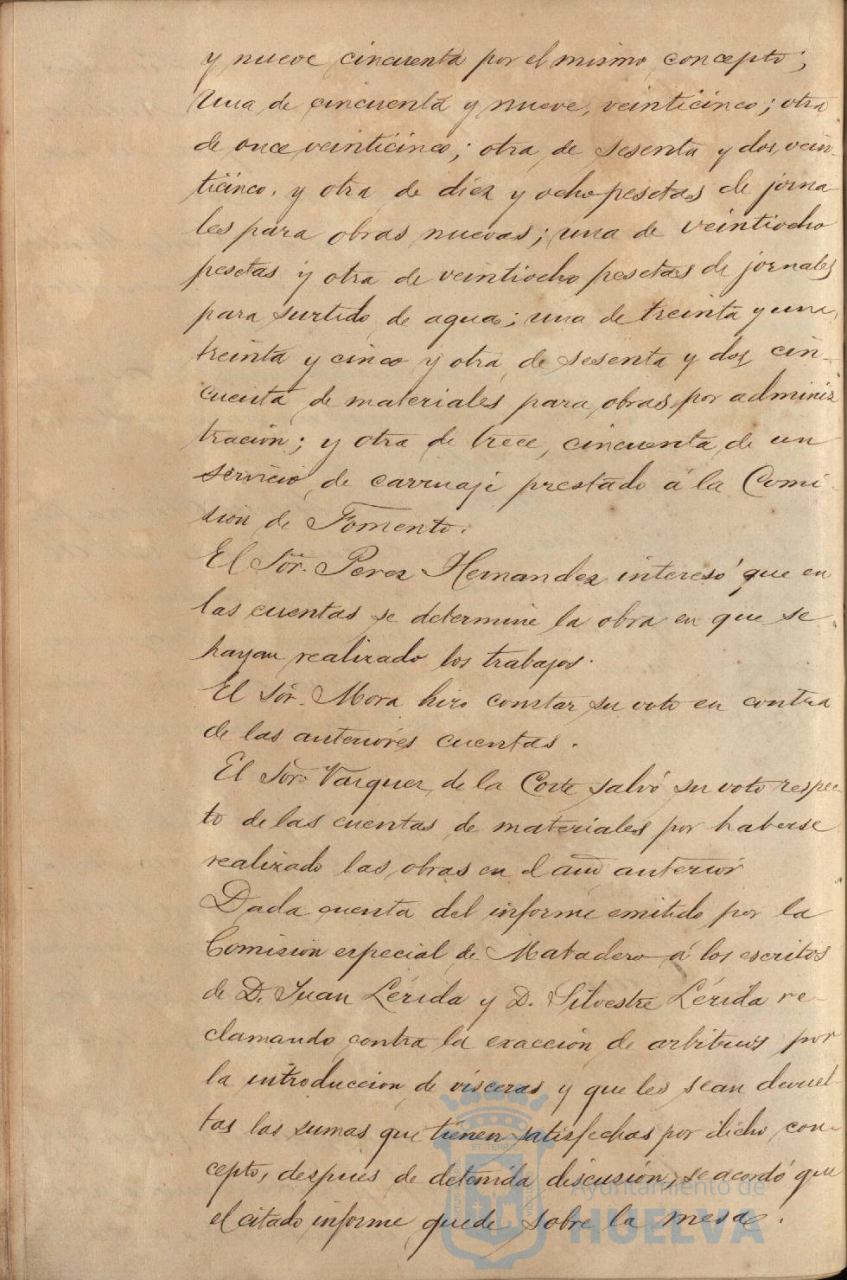 y nueve cincuenta por el mismo concepto;
una de cincuenta y nueve, veinticinco; otra
de once veinticinco; otra de sesenta y dos, vein-
ticinco, y otra de diez y ocho pesetas de jorna
les para obras nuevas; una de veintiocho
pesetas y otra de veintiocho pesetas de jornales
para surtido de aguas; una de treinta y una,
treinta y cinco y otra de sesenta y dos, cin-
cuenta de materiales para obras por adminis
tración; y otra de trece, cincuenta de un
servicio de carruaje prestado á la Comi-
sion de Fomento.
El Sor. Perez Hernandez interesó que en
las cuentas se determine la obra en que se
hayan realizado los trabajos.
El Sor. Mora hizo constar su voto en contra
de las anteriores cuentas.
El Sor. Vazquez de la Corte salvó su voto respec-
to de las cuentas de materiales por haberse
realizado las obras en el año anterior
Dada cuenta del informe emitido por la
Comision especial de Matadero á los escritos
de D. Juan Lérida y D. Silvestre Lérida re-
clamando contra la exacción de arbitrios por
la introduccion de visceras y que les sean devuel-
tas las sumas que tienen satisfechas por dicho con-
cepto, despues de detenida discusión, se acordó que
el citado informe quede sobre la mesa.
Ayuntamiento de
HUELVA